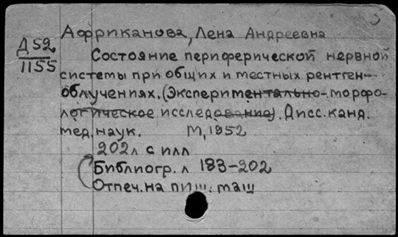 Африканова, Лена Андреевна
Д 52
1155
Состояние периферической нервной
системы при общих и местных рентген-
облучениях. (Экспериментально-морфо-
логическое исследование). Дисс. канд.
мед. наук. М, 1952
202 л с илл
Библиогр. л 183-202
Отпеч. на пиш. маш